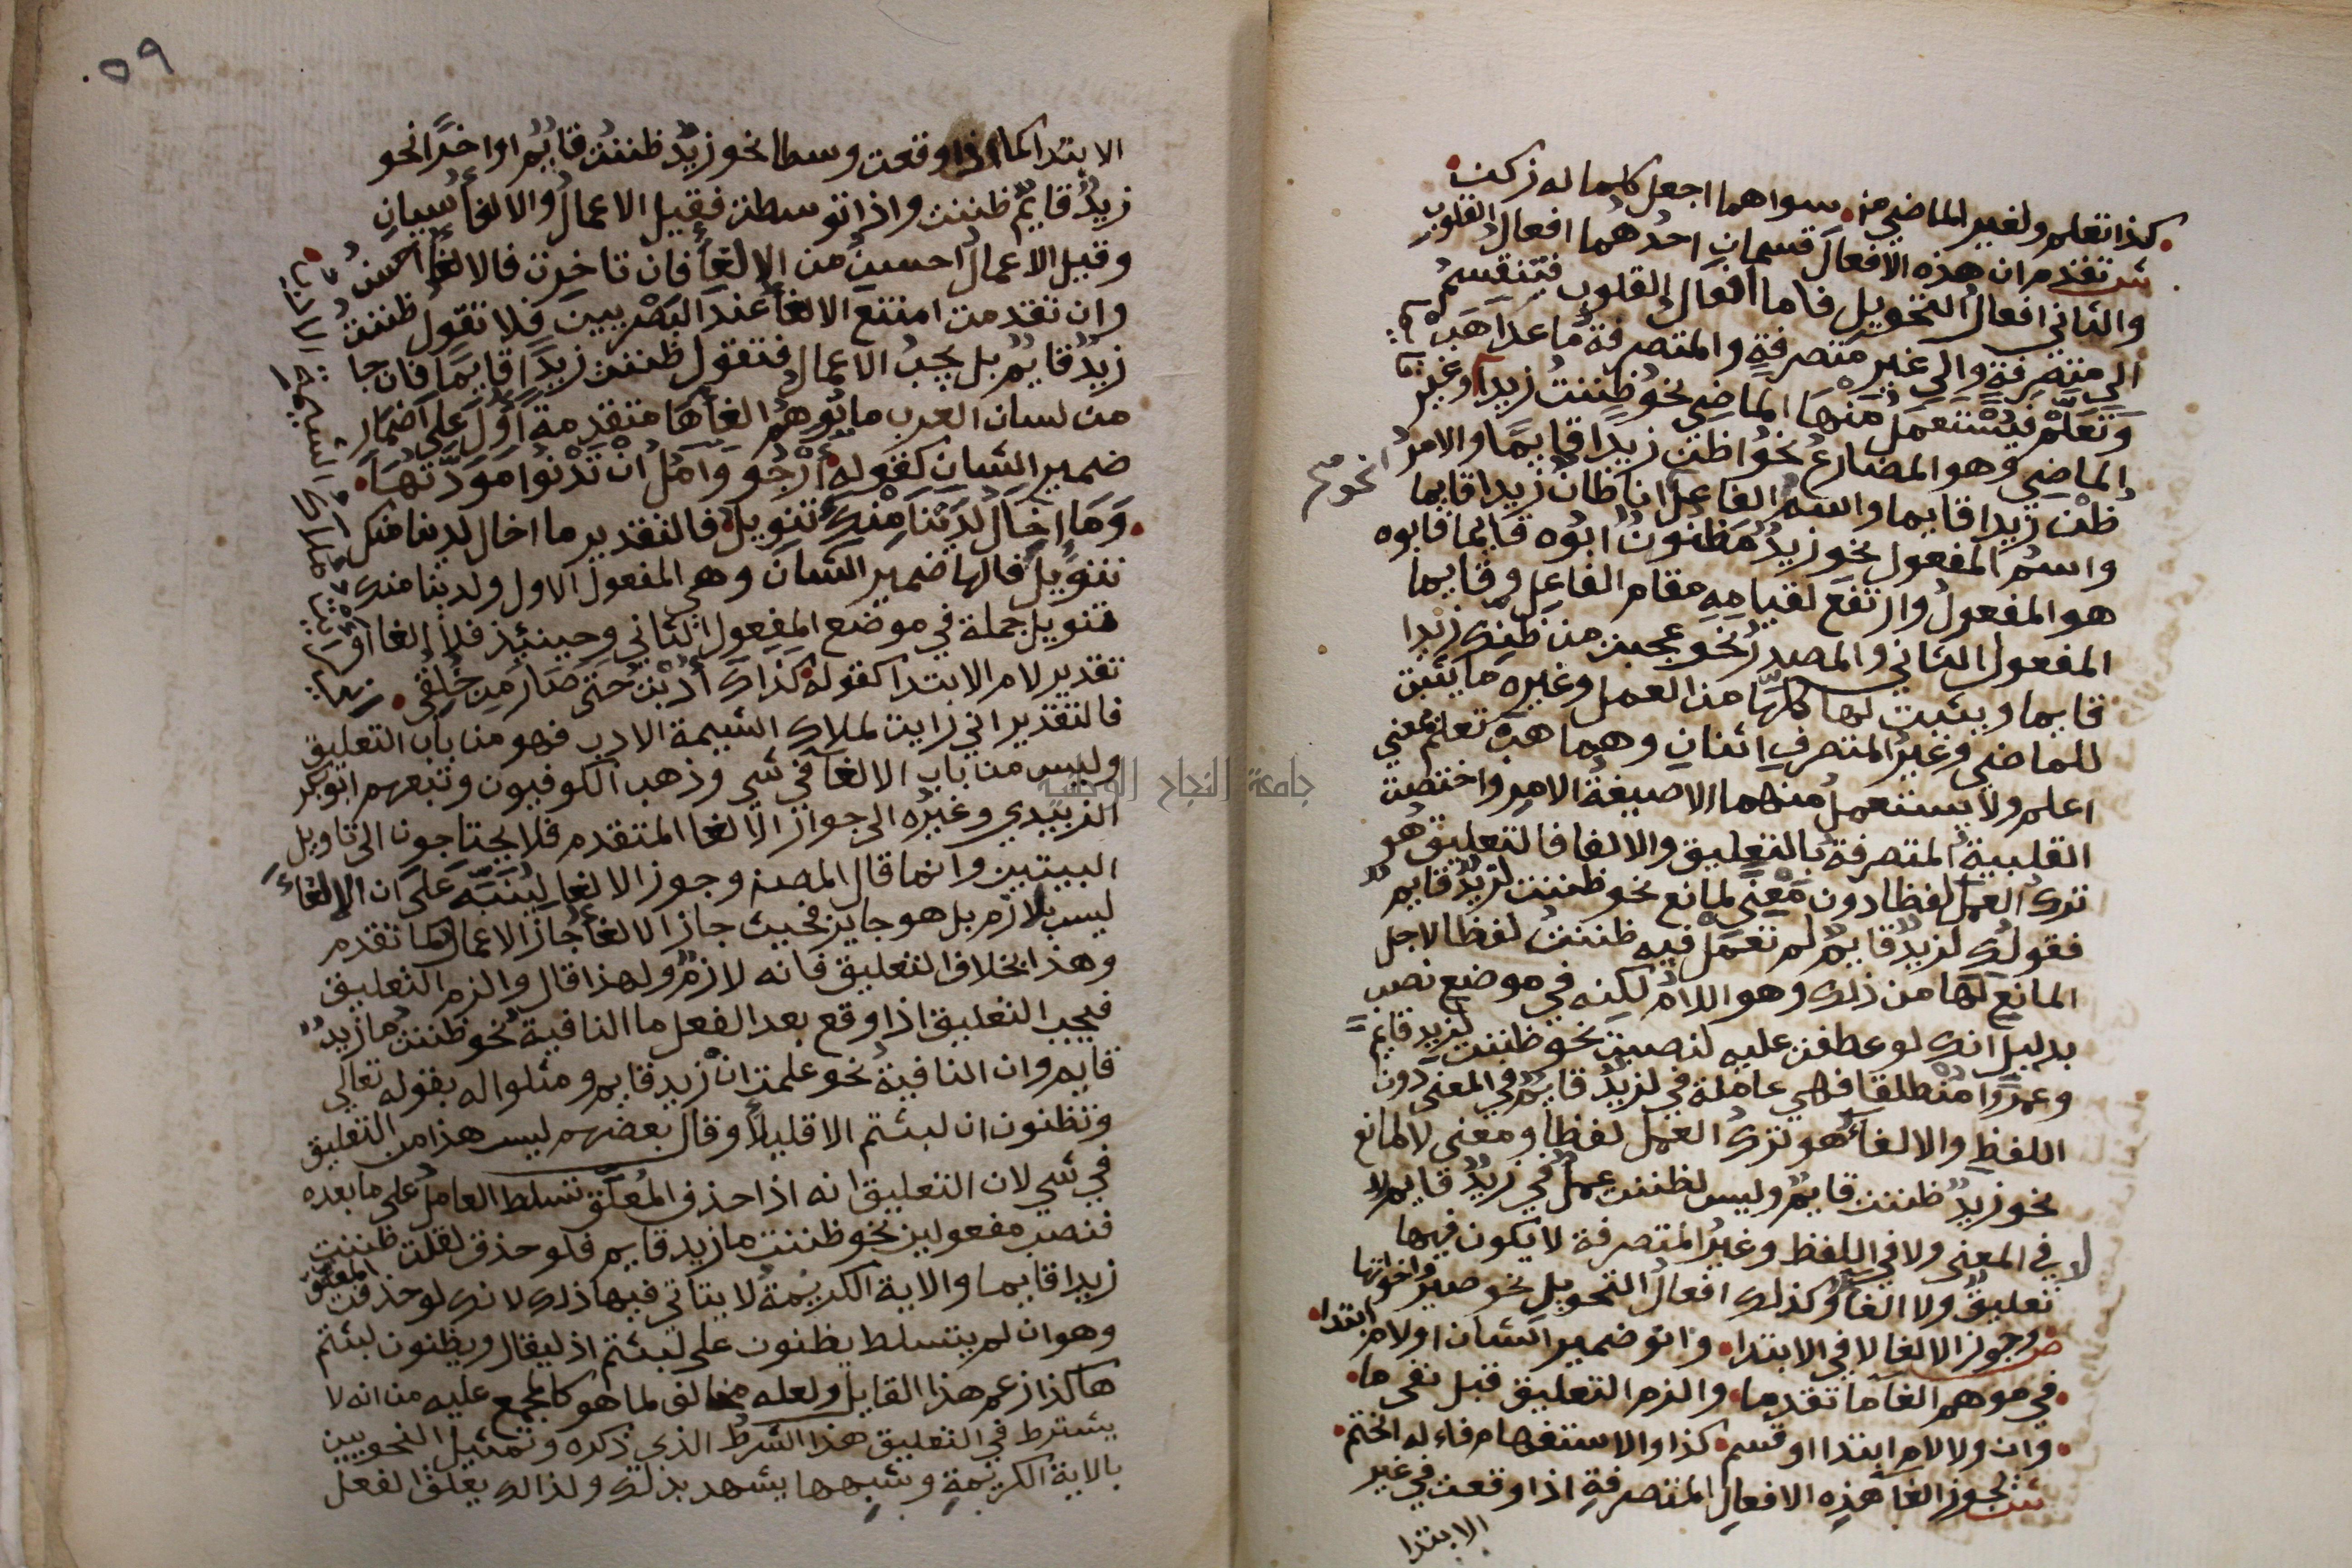 كذا تعلم ولغير الماضي من سواهما اجعل كلما له زكن
ش تقدم ان هذه الافعال قسمان احدهما افعال القلوب
والثاني افعال التحويل فاما افعال القلوب فتنقسم
الى متصرفة والى غير متصرفة والمتصرفة ما عدا هب
وتعلم فيستعمل منها الماضي نحو ظننت زيدا وغير
الماضي وهو المضارع نحو اظن زيدا قايما والامر نحو
ظن زيدا قايما واسم الفاعل انا ظان زيدا قايما
واسم المفعول نحو زيد مظنون ابوه قايما فابوه
هو المفعول وارتفع لقيامه مقام الفاعل وقايما
المفعول الثاني والمصدر نحو عجبت من ظنك زيدا
قايما ويثبت لها كلها من العمل وغيره ما يثبت
للماضي وغير المتصرف اثنان وهما هب تعلم بمعنى
اعلم ولا يستعمل منهما الا صيغة الامر واختصت
القلبية المتصرفة بالتعليق والالغا فالتعليق هو
ترك العمل لفظا دون معنى لمانع نحو ظننت لزيد قايم
فقولك لزيد قايم لم تعمل فيه ظننت لفظا لاجل
المانع لها من ذلك وهو اللام لكنه في موضع نصب
بدليل انك لو عطفت عليه لنصبت نحو ظننت لزيد قايم
وعمرا منطلقا فهي عاملة في لزيد قايم في المعنى دون
اللفظ والالغاء هو ترك العمل لفظا ومعنى لا لمانع
نحو زيد ظننت قايم وليس لظننت عمل في زيد قايم
لا في المعنى ولا في اللفظ وغير المتصرفة لا يكون فيها
تعليق ولا الغاء وكذلك افعال التحويل نحو صير واخواتها
ص وجوز الالغا لا في الابتدا وانو ضمير الشان او لام ابتدا
في موهم الغا ما تقدما والتزم التعليق قبل نفي ما
وان ولا لام ابتدا او قسم كذا والاستفهام ذا له انحتم
ش يجوز الغا هذه الافعال المتصرفة اذا وقعت في غير
الابتدا
٥٩
الابتدا كما اذا وقعت وسطا نحو زيد ظننت قايم او اخرا نحو
زيد قايم ظننت واذا توسطت فقيل الاعمال والالغا سيان
وقيل الاعمال احسن من الالغا فان تاخرت فالالغا احسن
وان تقدمت امتنع الالغا عند البصريين فلا تقول ظننت
زيد قايم بل يجب الاعمال فتقول ظننت زيدا قايما فان جا
من لسان العرب ما يوهم الغاها متقدمة اول على اضمار
ضمير الشان كقوله ارجو وامل ان تدنوا مودتها
وما اخال لدينا منك تنويل فالتقدير ما اخال لدينا منك
تنويل فالها ضمير الشان وهي المفعول الاول ولدينا منك
تنويل جملة في موضع المفعول الثاني وحينئذ فلا الغا او
تقدير لام الابتدا كقوله كذاك أدبت حتى صار من خلقي
فالتقدير اني رايت لملاك الشيمة الادب فهو من باب التعليق
وليس من باب الالغا في شي وذهب الكوفيون وتبعهم ابو بكر
الزبيدي وغيره الى جواز الالغا المتقدم فلا يحتاجون الى تاويل
البيتين وانما قال المصنف وجوز الالغا لينبه على ان الالغا
ليس بلازم بل هو جايز فحيث جاز الالغا جاز الاعمال كما تقدم
وهذا بخلاف التعليق فانه لازم ولهذا قال والزم التعليق
فيجب التعليق اذا وقع بعد الفعل ما النافية نحو ظننت ما زيد
قايم وان النافية نحو علمت ان زيد قايم ومثلوا له بقوله تعالى
وتظنون ان لبثتم الا قليلا وقال بعضهم ليس هذا من التعليق
في شي لان التعليق انه اذا حذف المعلق تسلط العامل على ما بعده
فنصب مفعولين نحو ظننت ما زيد قايم فلو حذفت لقلت ظننت
زيدا قايما والاية الكريمة لا يتاتى فيها ذلك لانك لو حذفت المعلق
وهو ان لم يتسلط يظنون على لبثتم اذ ليقال ويظنون لبثتم
هاكذا زعم هذا القايل ولعله مخالف لما هو كالمجمع عليه من انه لا
يشترط في التعليق هذا الشرط الذي ذكره وتمثيل النحويين
بالاية الكريمة وشبهها يشهد بذلك وكذلك يعلق الفعل
جامعة النجاح الوطنية